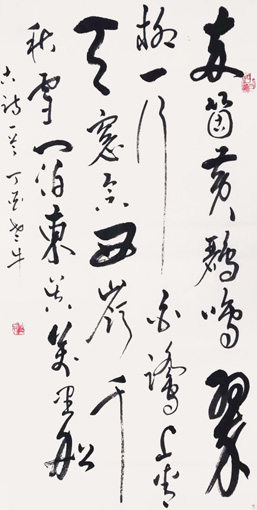 兩箇黃鸝鳴翠
柳一行白鷺上青
天窗含西嶺千
秋雪門泊東吳萬里船
古詩一首丁酉牛